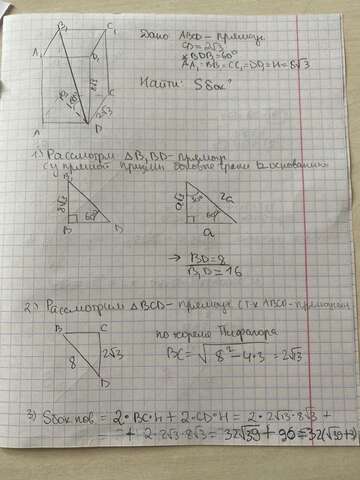 B₁ C₁
A₁ D₁
B C
60°
2√3
A D
Дано: ABCD - прямоуг.
CD = 2√3
∠BDB₁ = 60°
AA₁ = BB₁ = CC₁ = DD₁ = H = 8√3
Найти: Sбок?
1) Рассмотрим ΔB₁BD - прямоуг.
(у прямой призмы боковые грани ⊥ основанию)
B₁
8√3
60°
B D
a√3
30°
2a
60°
a
→ BD = 8
B₁D = 16
2) Рассмотрим ΔBCD - прямоуг. (т.к. ABCD - прямоугол
B C
8 2√3
D
по теореме Пифагора
BC = √8² - 4·3 = 2√13
3) Sбок пов = 2·BC·H + 2·CD·H = 2·2√13·8√3 +
+ 2·2√3·8√3 = 32√39 + 96 = 32(√39+3)